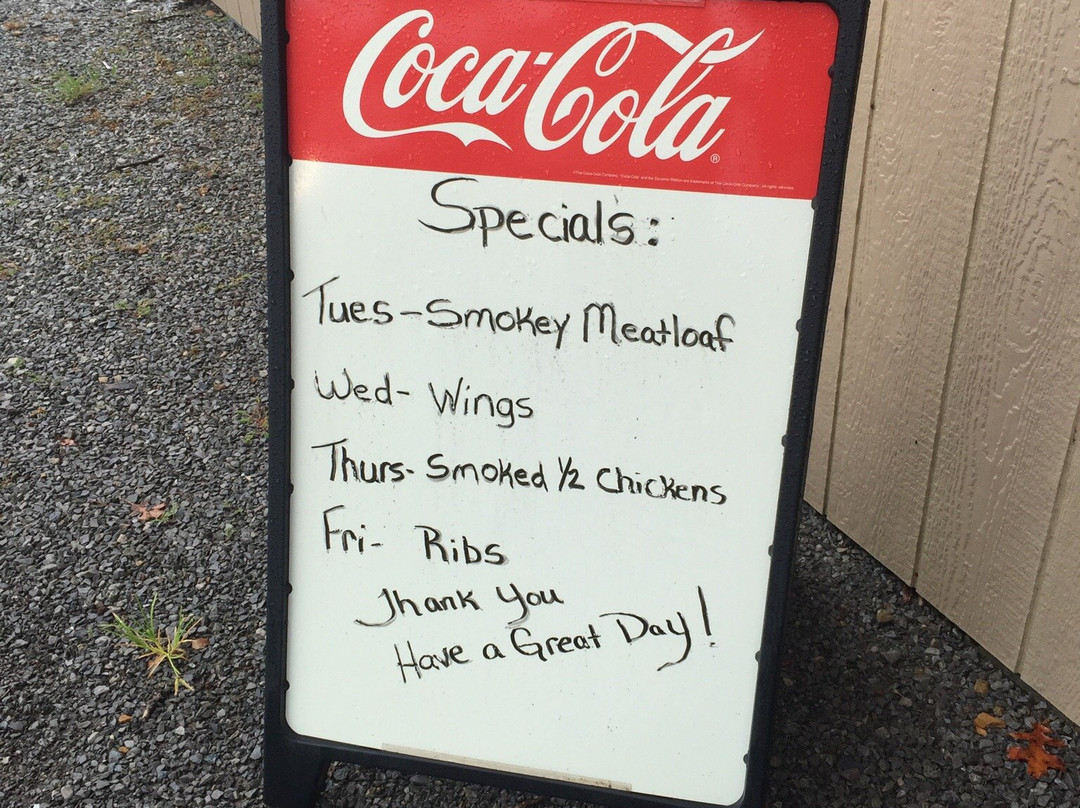 Coca-Cola
Specials:
Tues-Smokey Meatloaf
Wed- Wings
Thurs- Smoked 1/2 Chickens
Fri- Ribs
Thank You
Have a Great Day!